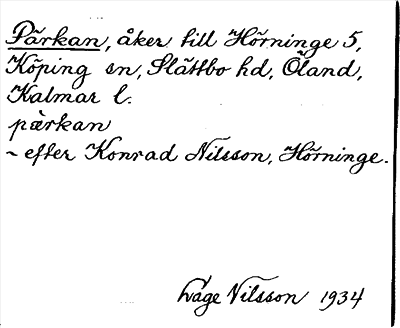 Pärkan, åker till Hörninge 5,
Köping sn, Slättbo hd, Öland,
Kalmar l.
pä̀rkan
~ efter Konrad Nilsson, Hörninge.
Låge Nilsson 1934